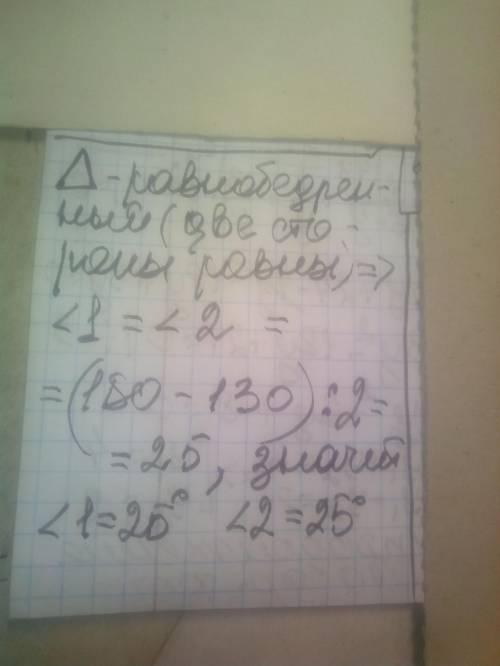 Δ-равнобедрен-
ный (две сто-
роны равны) =>
<1 = <2 =
= (180 - 130) : 2 =
= 25, значит
<1 = 25° <2 = 25°